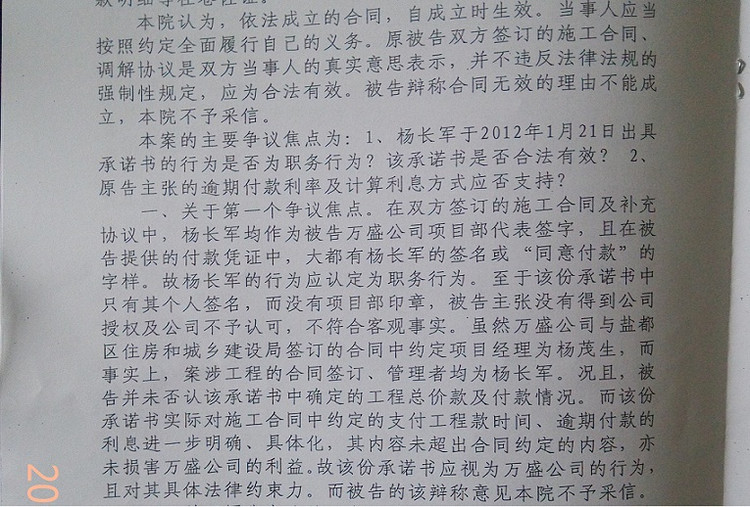 款明细等在卷佐证。
本院认为，依法成立的合同，自成立时生效。当事人应当
按照约定全面履行自己的义务。原被告双方签订的施工合同、
调解协议是双方当事人的真实意思表示，并不违反法律法规的
强制性规定，应为合法有效。被告辩称合同无效的理由不能成
立，本院不予采信。
本案的主要争议焦点为：1、杨长军于2012年1月21日出具
承诺书的行为是否为职务行为？该承诺书是否合法有效？ 2、
原告主张的逾期付款利率及计算利息方式应否支持？
一、关于第一个争议焦点。在双方签订的施工合同及补充
协议中，杨长军均作为被告万盛公司项目部代表签字，且在被
告提供的付款凭证中，大都有杨长军的签名或“同意付款”的
字样。故杨长军的行为应认定为职务行为。至于该份承诺书中
只有其个人签名，而没有项目部印章，被告主张没有得到公司
授权及公司不予认可，不符合客观事实。虽然万盛公司与盐都
区住房和城乡建设局签订的合同中约定项目经理为杨茂生，而
事实上，案涉工程的合同签订、管理者均为杨长军。况且，被
告并未否认该承诺书中确定的工程总价款及付款情况。而该份
承诺书实际对施工合同中约定的支付工程款时间、逾期付款的
利息进一步明确、具体化，其内容未超出合同约定的内容，亦
未损害万盛公司的利益。故该份承诺书应视为万盛公司的行为，
且对其具体法律约束力。而被告的该辩称意见本院不予采信。
20